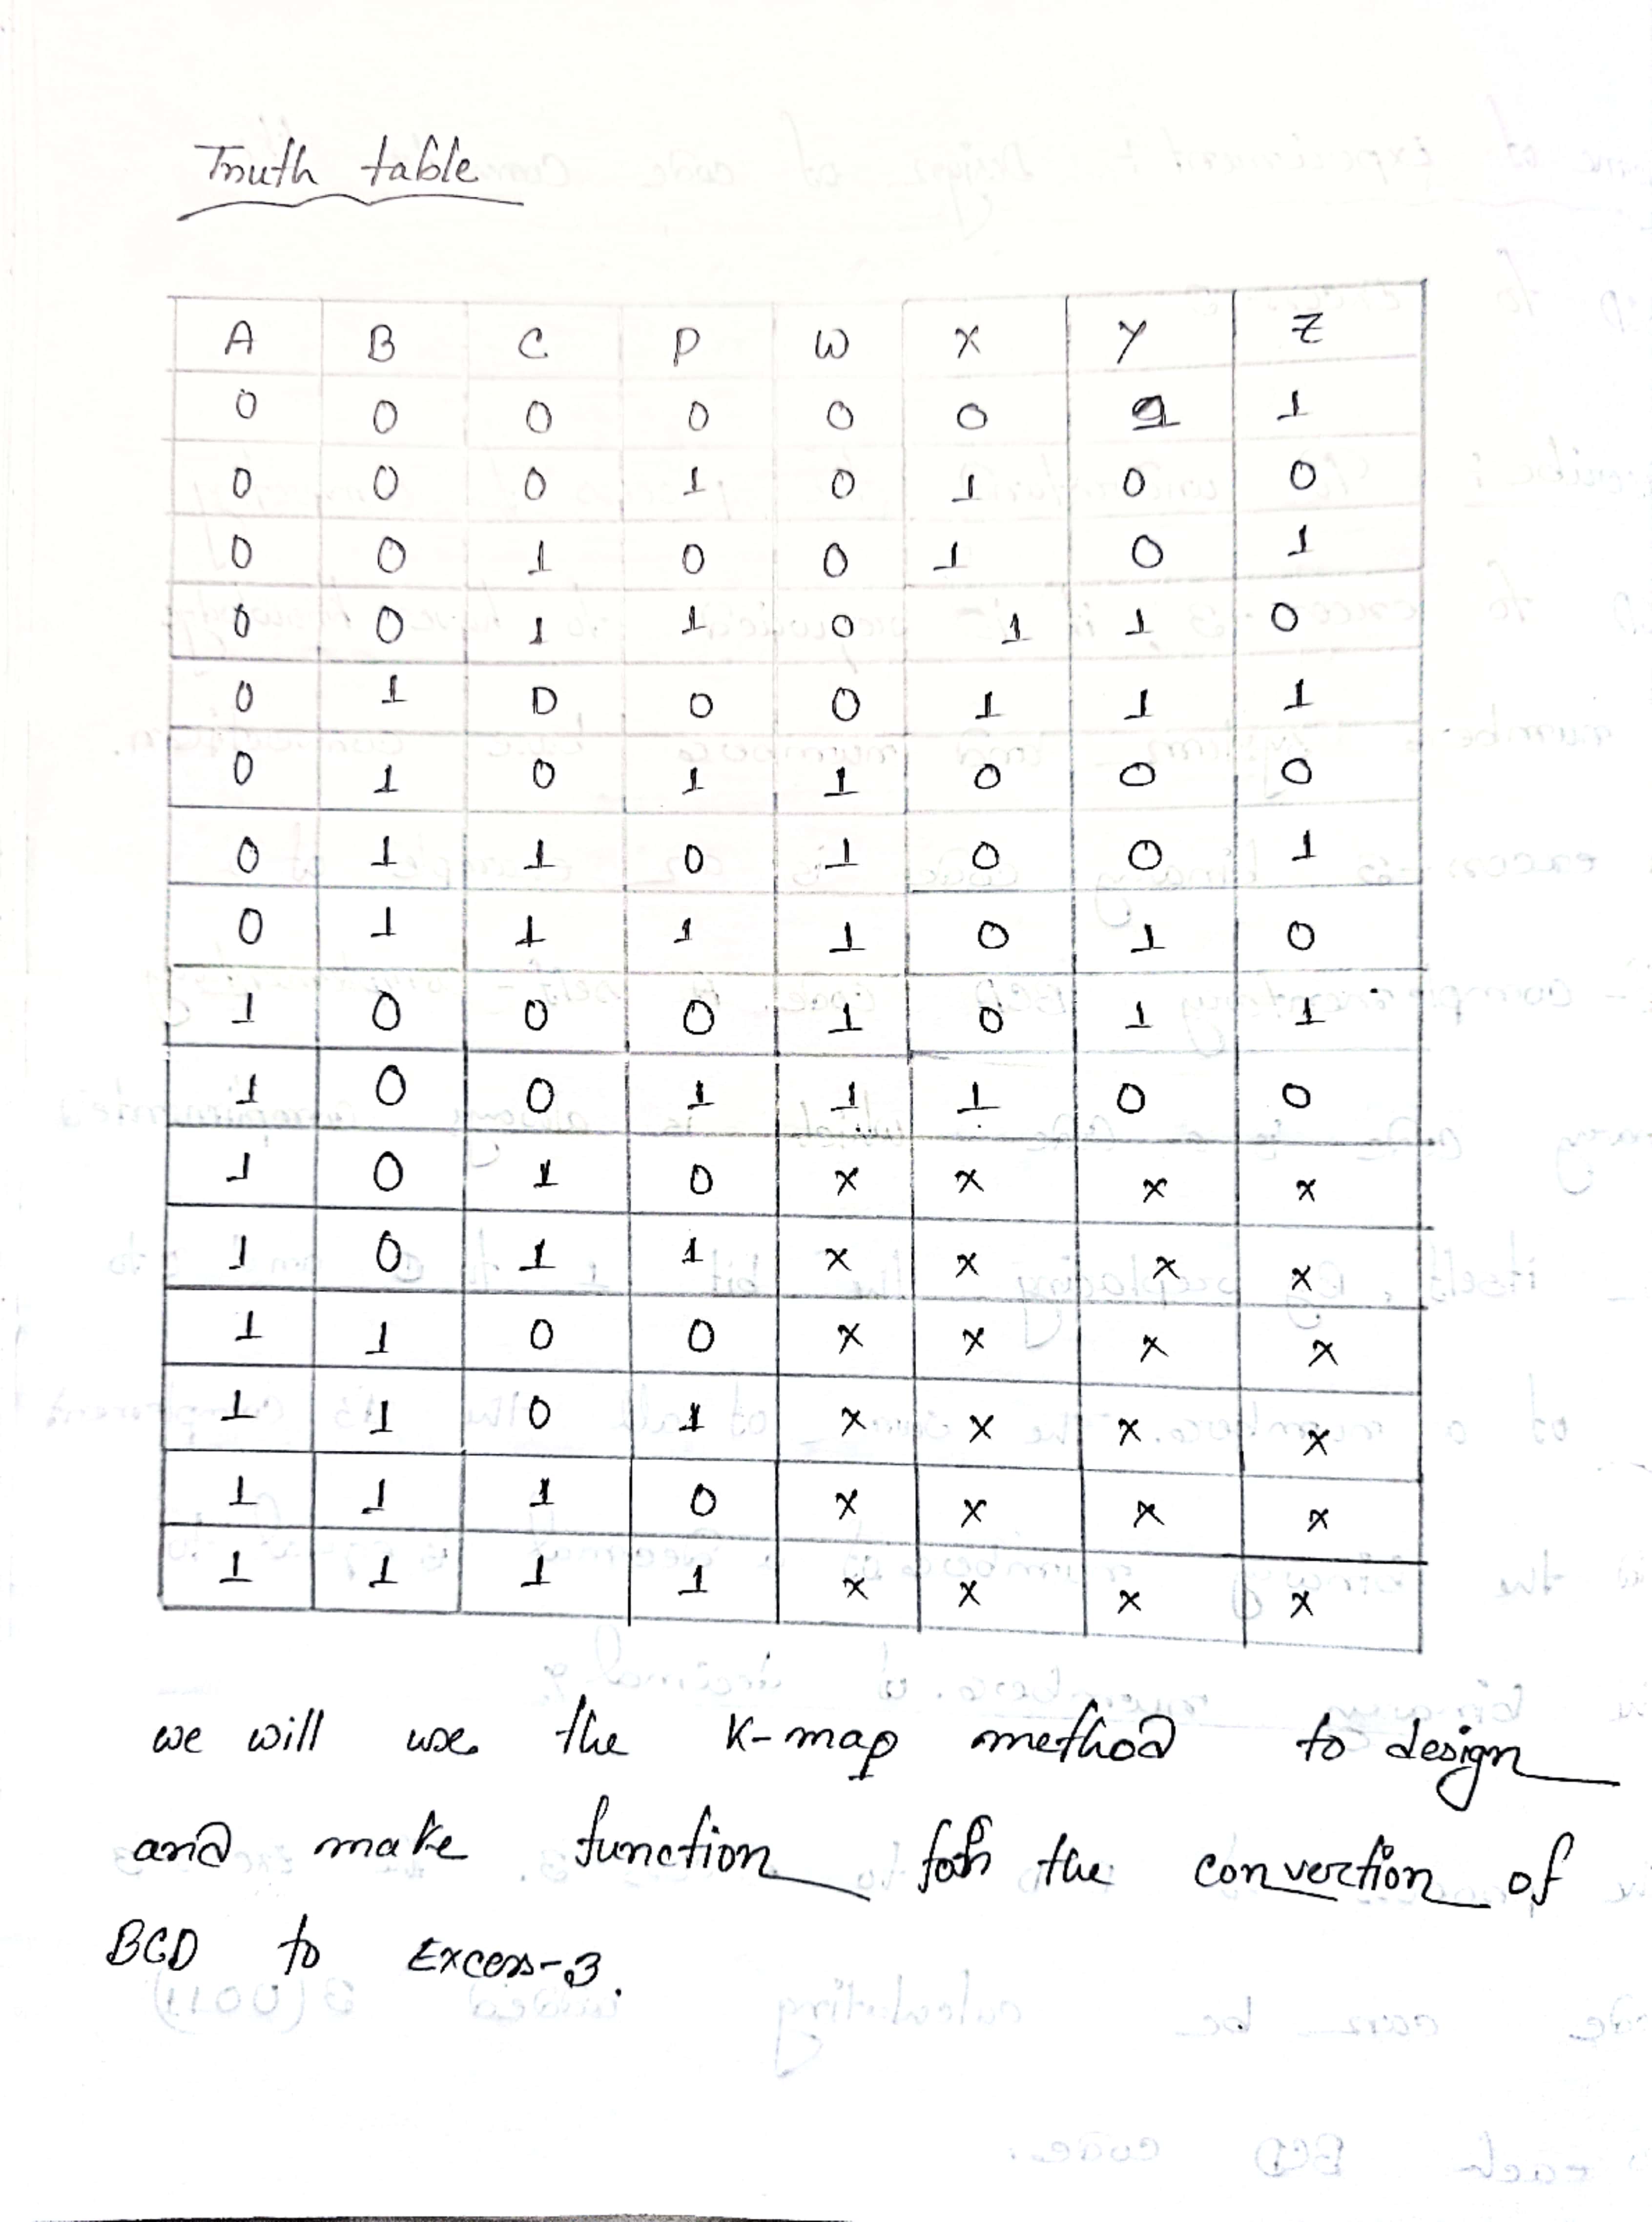 Truth table
A B C D W X Y Z
0 0 0 0 0 0 1 1
0 0 0 1 0 1 0 0
0 0 1 0 0 1 0 1
0 0 1 1 0 1 1 0
0 1 0 0 0 1 1 1
0 1 0 1 1 0 0 0
0 1 1 0 1 0 0 1
0 1 1 1 1 0 1 0
1 0 0 0 1 0 1 1
1 0 0 1 1 1 0 0
1 0 1 0 x x x x
1 0 1 1 x x x x
1 1 0 0 x x x x
1 1 0 1 x x x x
1 1 1 0 x x x x
1 1 1 1 x x x x
we will use the K-map method to design
and make function for the convertion of
BCD to Excess-3.